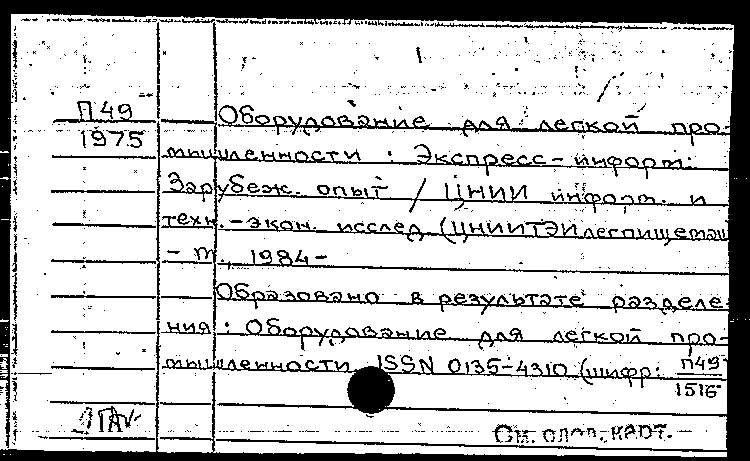 П49
1975
Оборудование для легкой про-
мышленности : Экспресс-информ.:
Заруbеж. опыт / ЦНИИ информ. и
техн.-экон. исслед. (ЦНИИТЭИлегпищемаш
- М., 1984-
Образовано в результате разделе-
ния : Оборудование для легкой про-
мышленности. ISSN 0135-4310 (шифр: П49
1516
См. алф. карт.